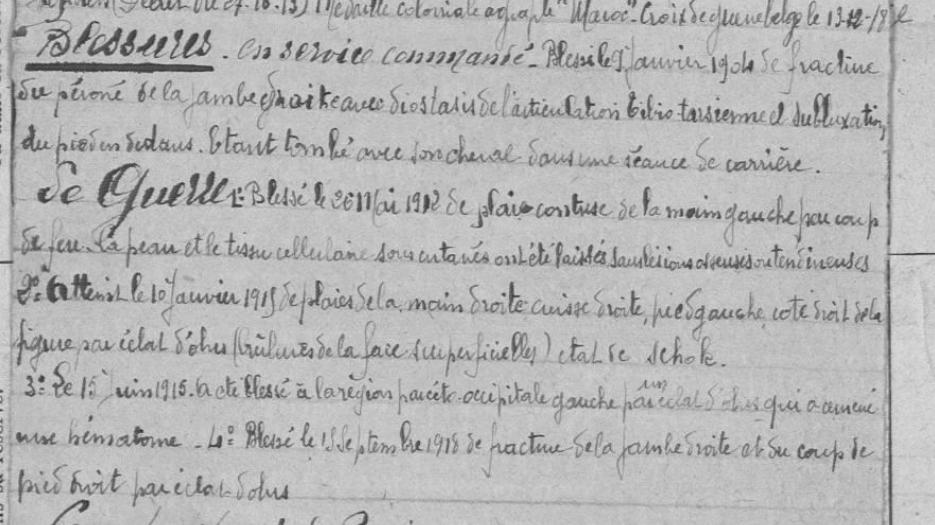 (Décret du 27.10.15) Médaille coloniale agrafe "Maroc". Croix de guerre belge le 13-12-18
Blessures. en service commandé - Blessé le 9 Janvier 1904 de fracture
du péroné de la jambe droite avec diastasis de l'articulation tibio-tarsienne et subluxation,
du pied en dedans. Etant tombé avec son cheval dans une séance de carrière.
de Guerre 1º Blessé le 26 Mai 1912 de plaie contuse de la main gauche par coup
de feu. La peau et le tissu cellulaire sous cutanés ont été laissés, sans lésions osseuses ou tendineuses
2º: Atteint le 10 Janvier 1915 de plaies de la main droite cuisse droite, pied gauche, coté droit de la
figure par éclat d'obus (brûlures de la face superficielles) etat de schok.
3º: Le 15 Juin 1915. a été blessé à la région pariéto-occipitale gauche par un éclat d'obus qui a amené
une hématome - 4º: Blessé le Septembre 1918 de fracture de la jambe droite et du coup de
pied droit par éclat d'obus